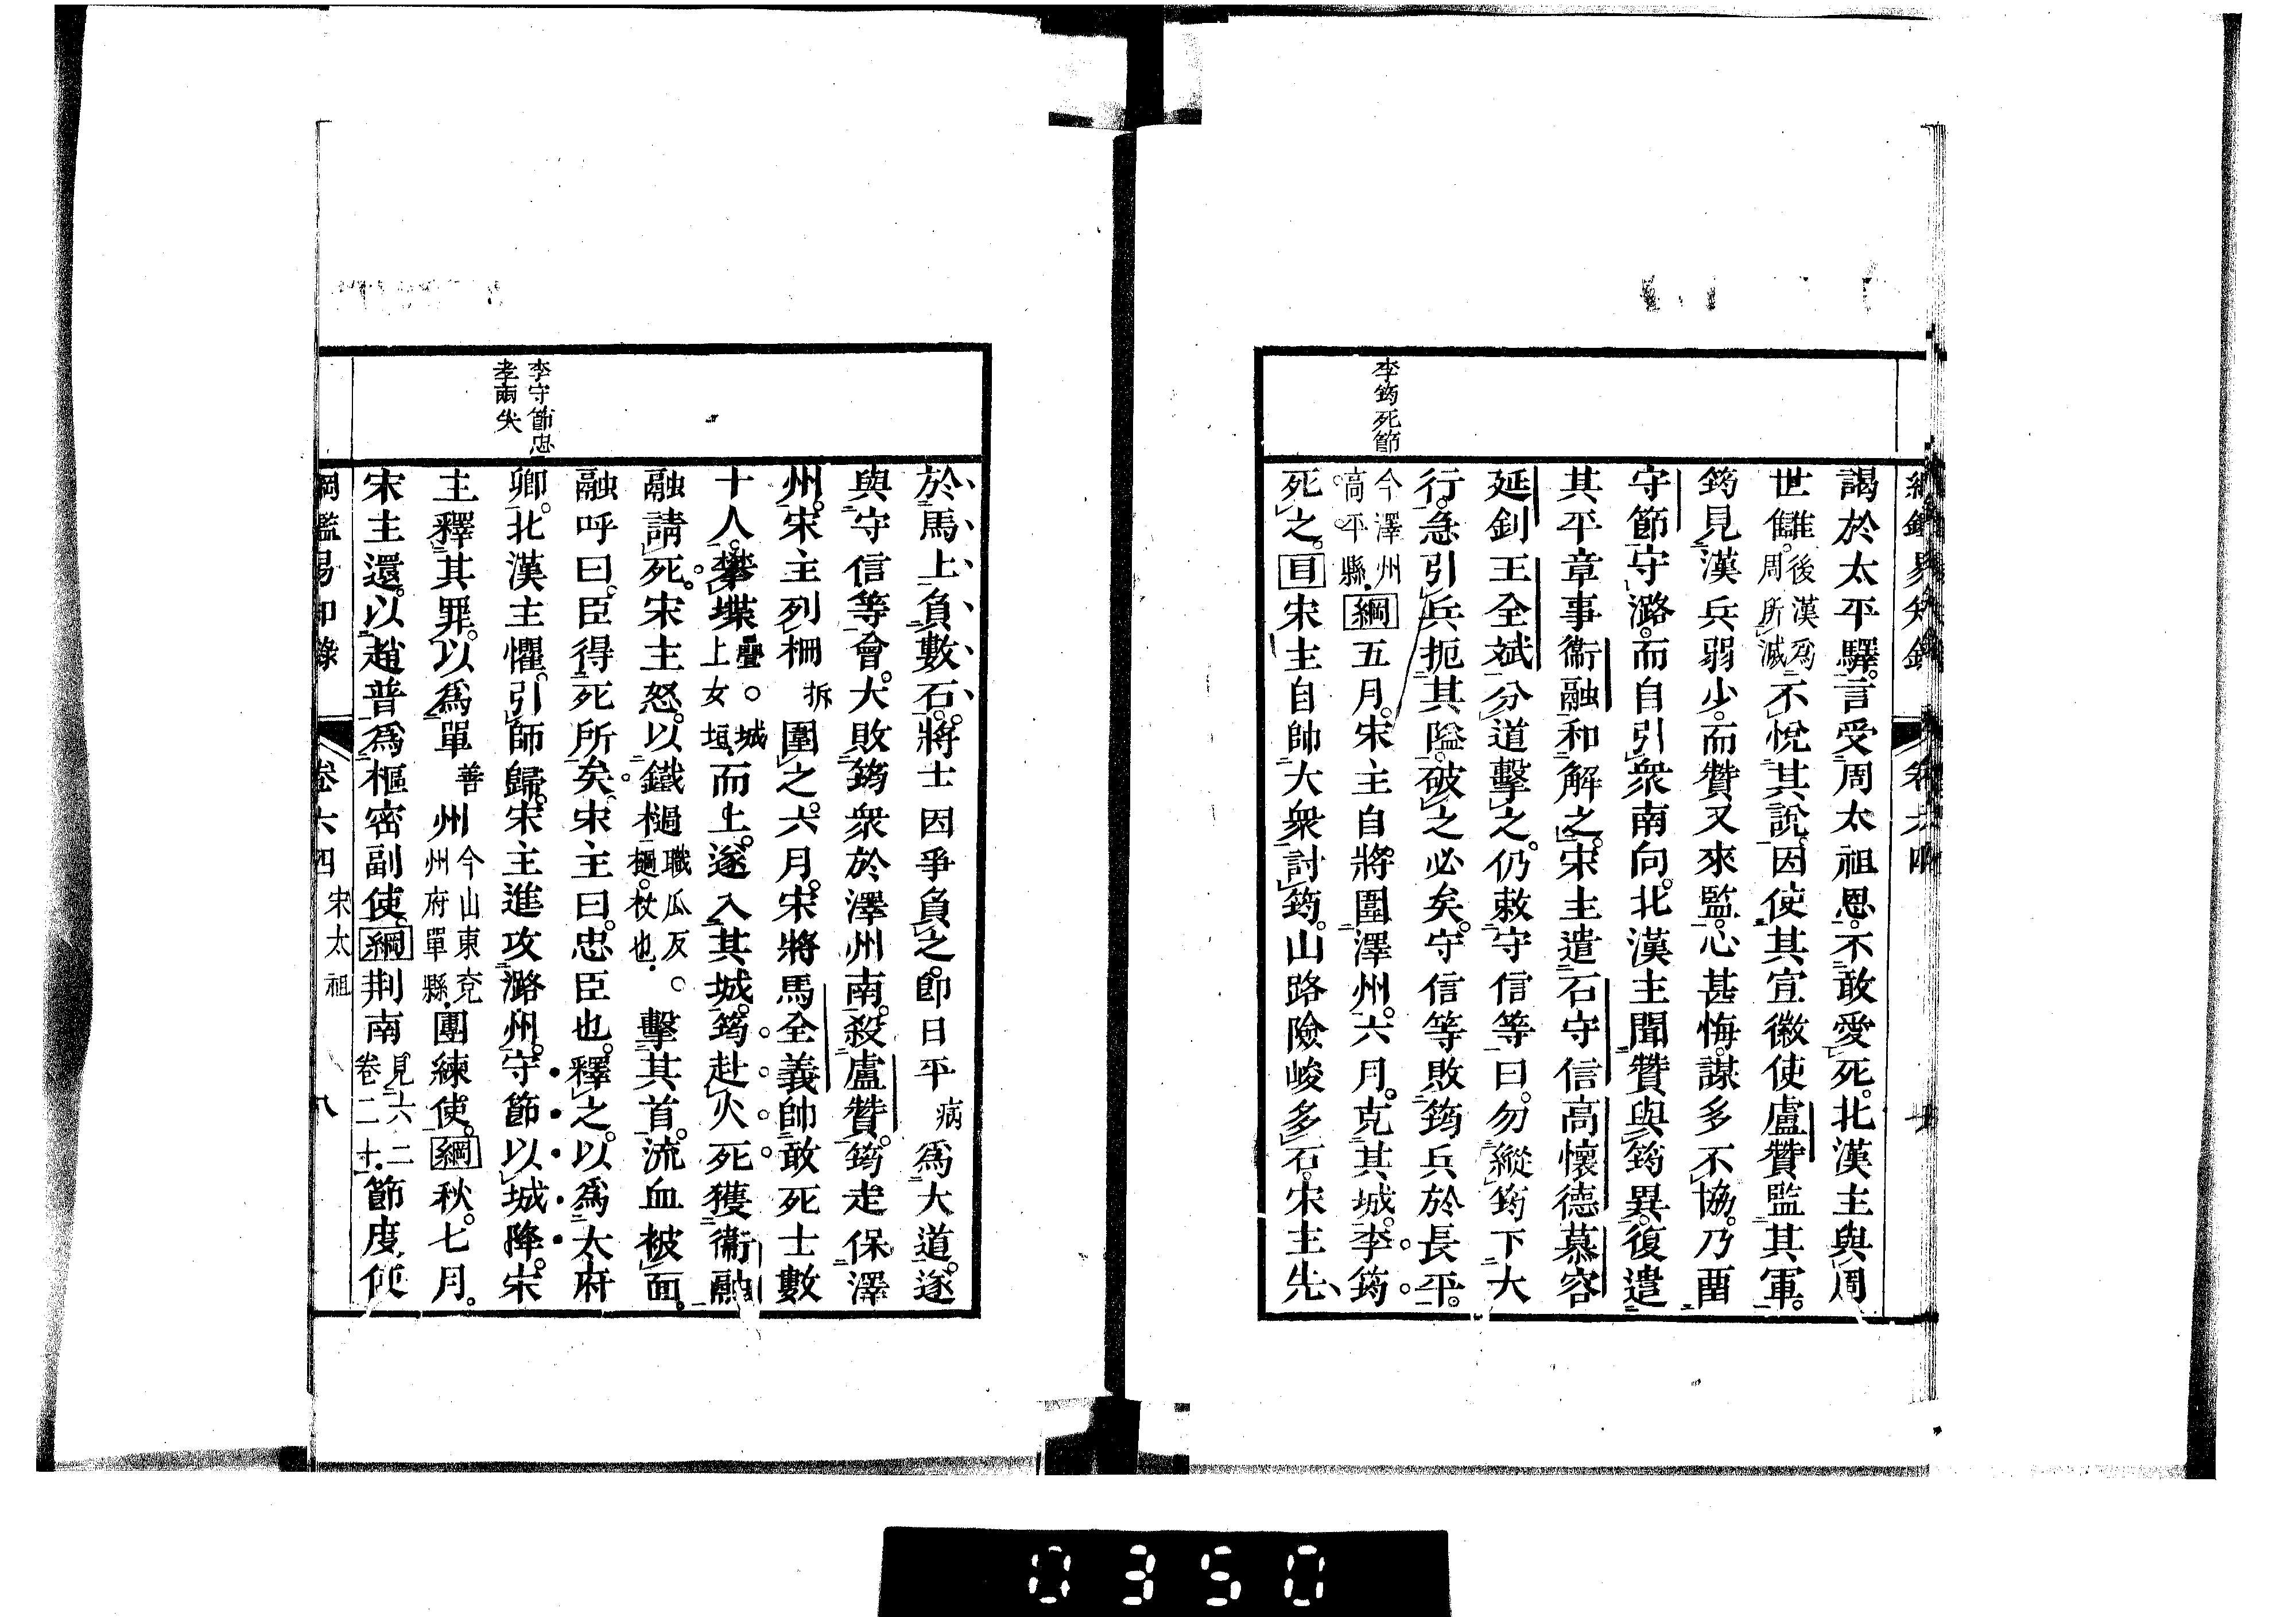 李筠死節
謁於太平驛。言受周太祖恩。不敢愛死。北漢主與周
世讎。後漢為周所滅不悅其說。因使其宣徽使盧贊監其軍。
筠見漢兵弱少。而贊又來監。心甚悔。謀多不協。乃畱
守節守潞。而自引衆南向。北漢主聞贊與筠異。復遣
其平章事衞融和解之。宋主遣石守信高懷德慕容
延釗王全斌分道擊之。仍敕守信等曰。勿縱筠下大
行。急引兵扼其隘。破之必矣。守信等敗筠兵於長平。
今澤州高平縣。綱五月。宋主自將圍澤州。六月。克其城。李筠
死之。目宋主自帥大衆討筠。山路險峻多石。宋主先
李守節忠
孝兩失
於馬上負數石。將士因爭負之。卽日平病為大道。遂
與守信等會。大敗筠衆於澤州南。殺盧贊。筠走保澤
州。宋主列柵拆圍之。六月。宋將馬全義帥敢死士數
十人。攀堞疊。城上女垣。而上。遂入其城。筠赴火死獲衞融
融請死。宋主怒。以鐵檛職瓜反。檛。杖也。擊其首。流血被面。
融呼曰。臣得死所矣。宋主曰。忠臣也。釋之。以為太府
卿。北漢主懼。引師歸。宋主進攻潞州。守節以城降。宋
主釋其罪。以為單善州今山東兗州府單縣。團練使。綱秋。七月。
宋主還。以趙普為樞密副使。綱荆南見六二卷二十。節度使
綱鑑易知錄 卷六四 宋太祖 八
0350